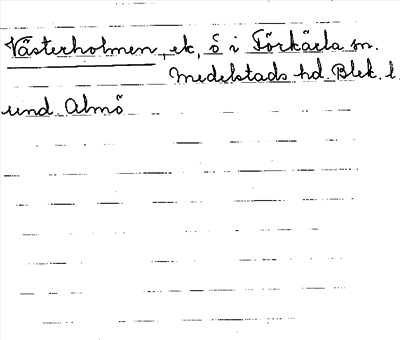 Västerholmen, ek, ö i Förkärla sn.
Medelstads hd. Blek. l
und. Almö